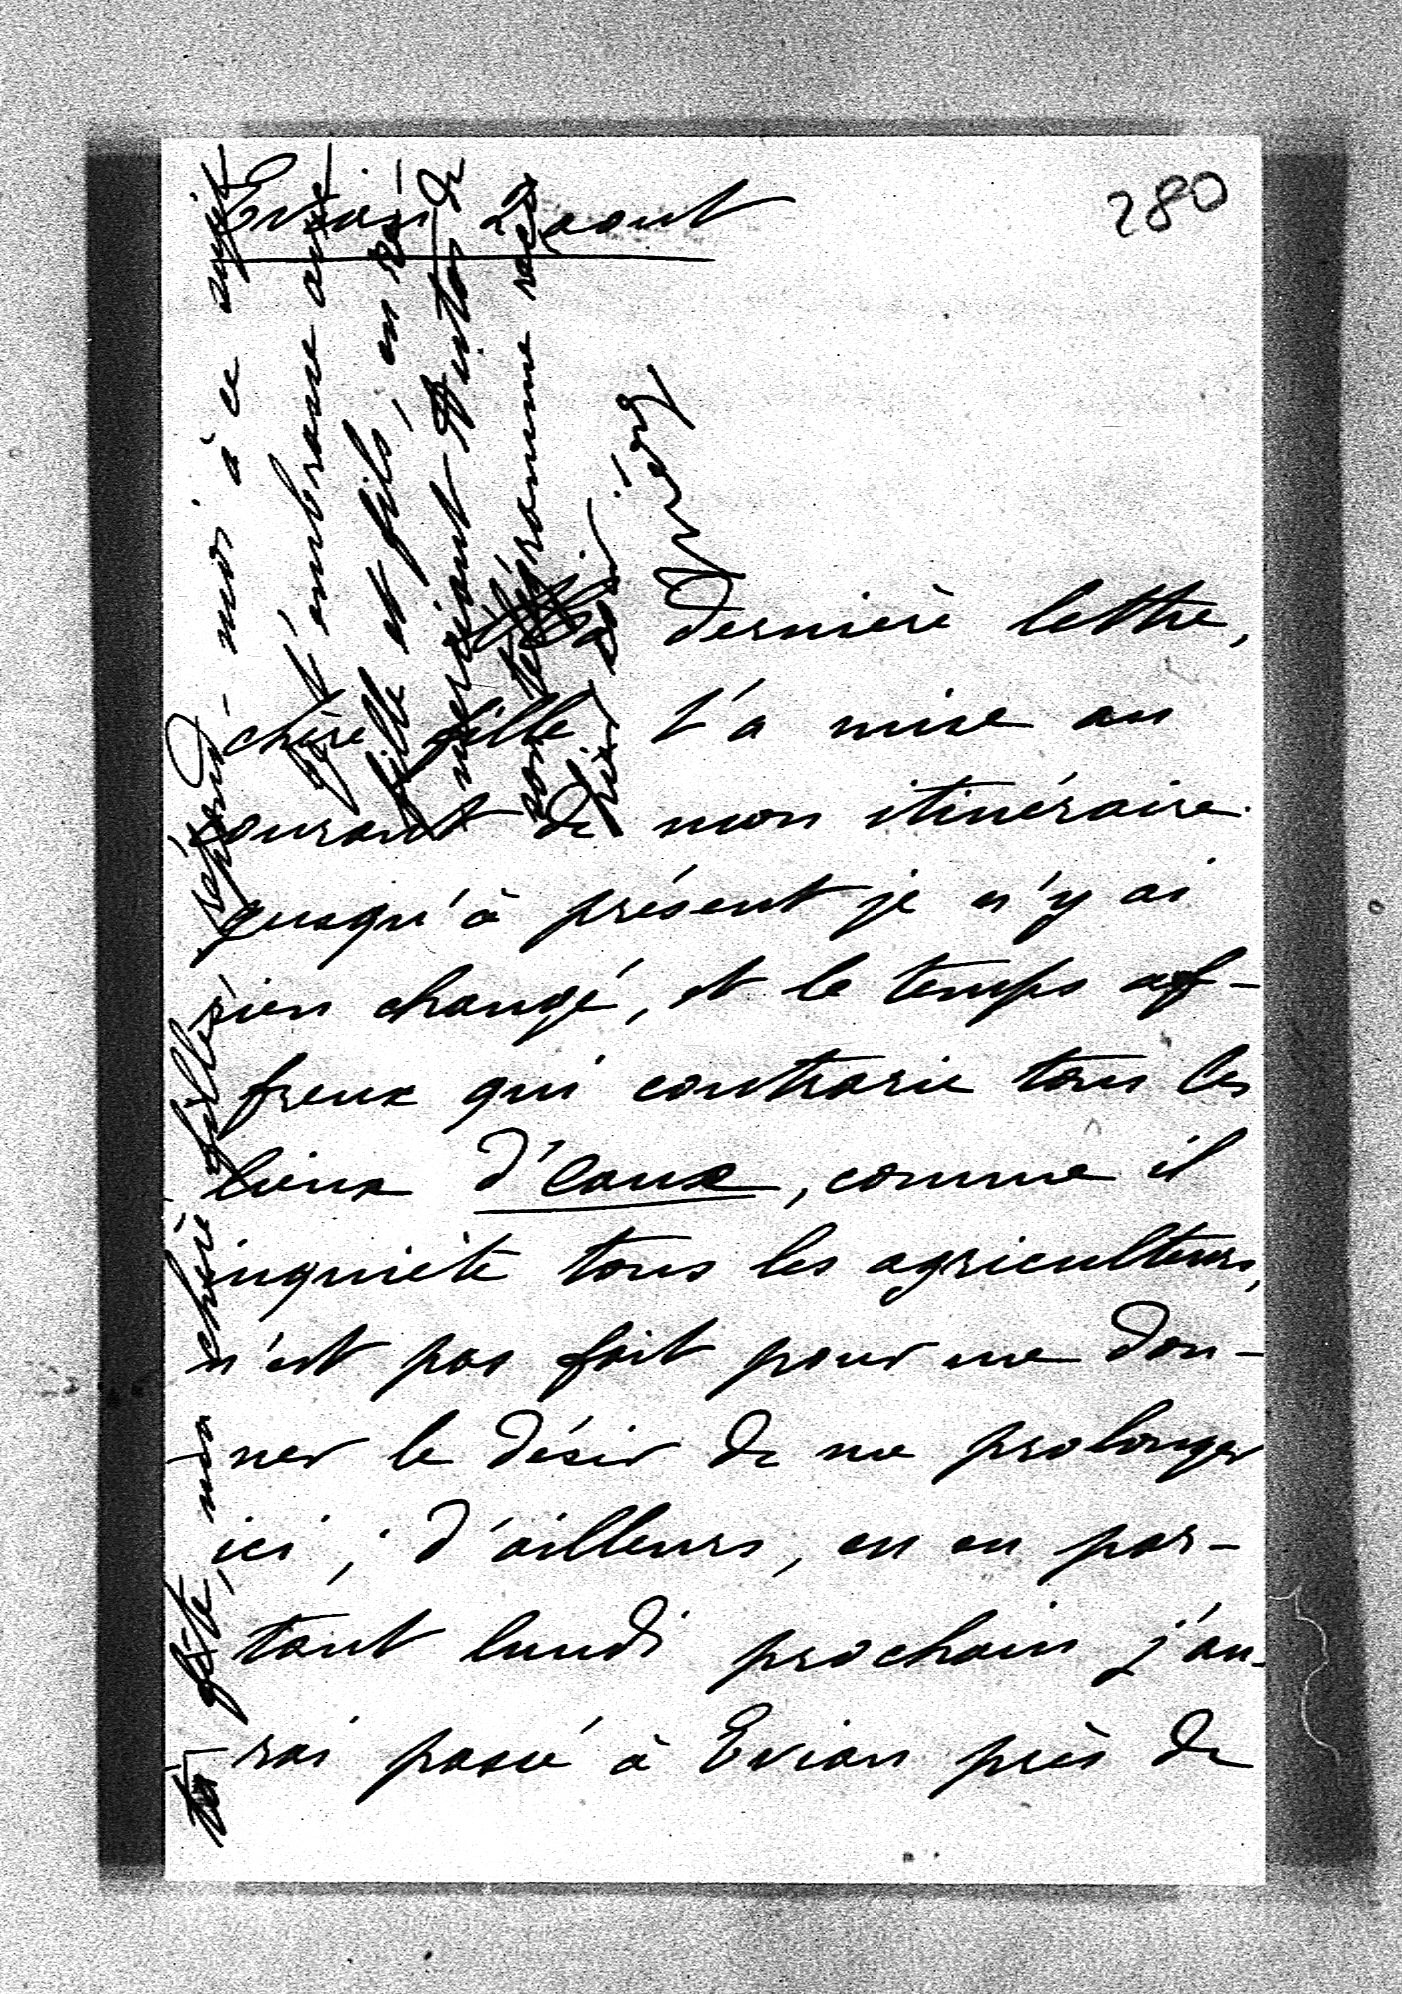 280
Evian 2 aout
Ma dernière lettre,
chère fille t'a mise au
courant de mon itinéraire.
jusqu'à présent je n'y ai
rien changé, et le temps af-
freux qui contrarie tous les
lieux d'eaux, comme il
inquiète tous les agriculteurs,
n'est pas fait pour me don-
ner le désir de me prolonger
ici ; d'ailleurs, en en par-
tant lundi prochain j'au-
rai passé à Evian près de
ta fête, ma chère fille, réponds-moi à ce sujet
Je t'embrasse ainsi
fille et fils, en re
merciant Hinto de
son télégramme
hier soir